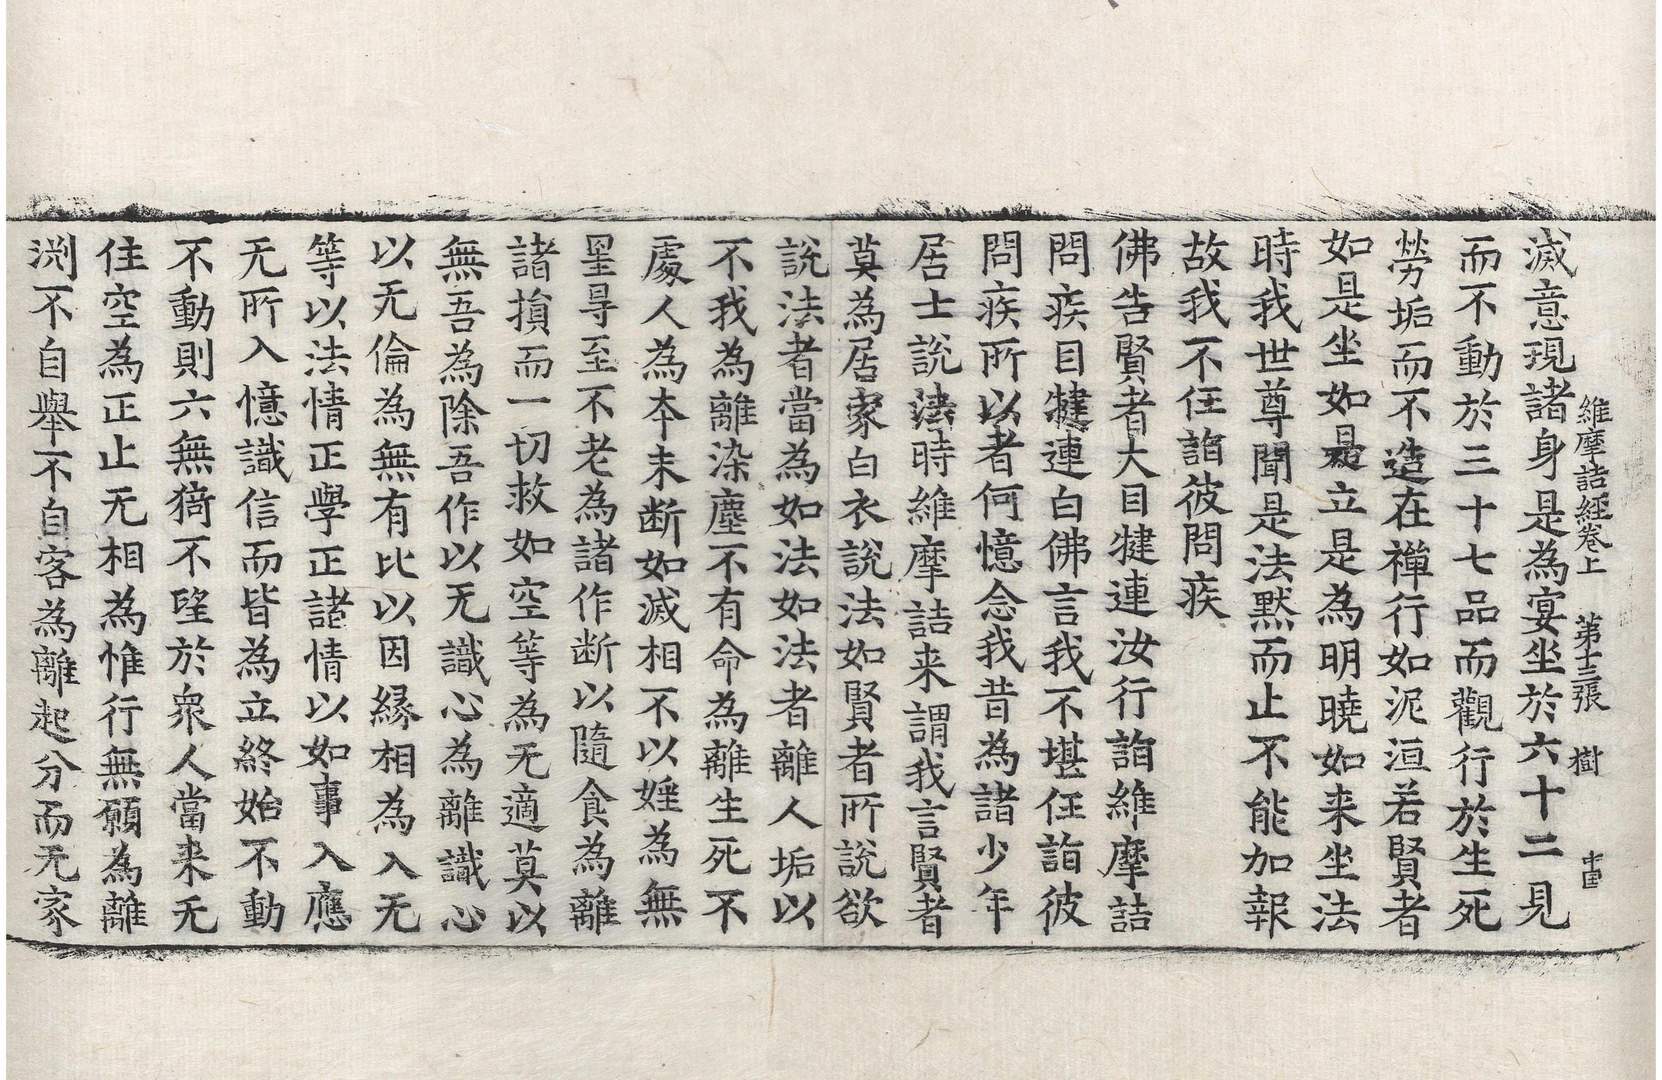 維摩詰經卷上 第十三張 樹
滅意現諸身是為宴坐於六十二見
而不動於三十七品而觀行於生死
勞垢而不造在禪行如泥洹若賢者
如是坐如是立是為明曉如来坐法
時我世尊聞是法默而止不能加報
故我不任詣彼問疾
佛告賢者大目揵連汝行詣維摩詰
問疾目揵連白佛言我不堪任詣彼
問疾所以者何憶念我昔為諸少年
居士說法時維摩詰来謂我言賢者
莫為居家白衣說法如賢者所說欲
說法者當為如法如法者離人垢以
不我為離染塵不有命為離生死不
處人為本末断如滅相不以婬為無
罣㝵至不老為諸作断以隨食為離
諸損而一切救如空等為无適莫以
無吾為除吾作以无識心為離識心
以无倫為無有比以因縁相為入无
等以法情正學正諸情以如事入應
无所入憶識信而皆為立終始不動
不動則六無猗不望於衆人當来无
住空為正止无相為惟行無願為離
渕不自舉不自容為離起分而无家